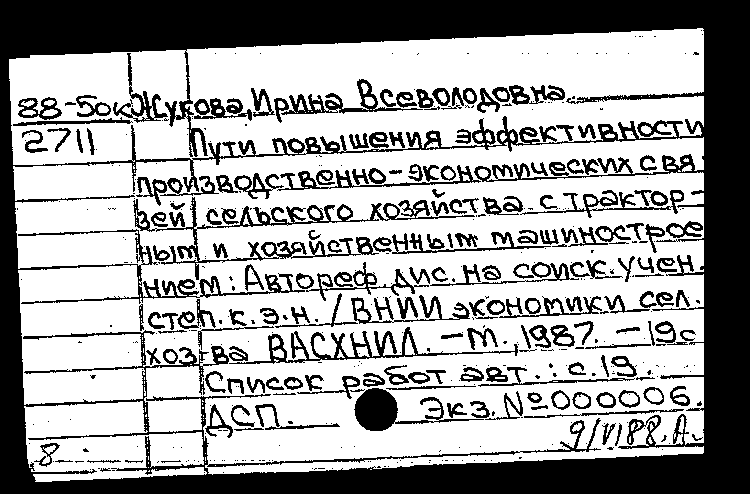 88-5ок Жукова, Ирина Всеволодовна
2711 Пути повышения эффективности
производственно-экономических свя
зей сельского хозяйства с трактор-
ным и хозяйственным машинострое
нием: Автореф. дис. на соиск. учен.
степ. к.э.н. / ВНИИ экономики сел.
хоз-ва ВАСХНИЛ. - М., 1987. - 19с
Список работ авт.: с. 19.
ДСП. Экз. №000006.
8. 9/VI88. А.